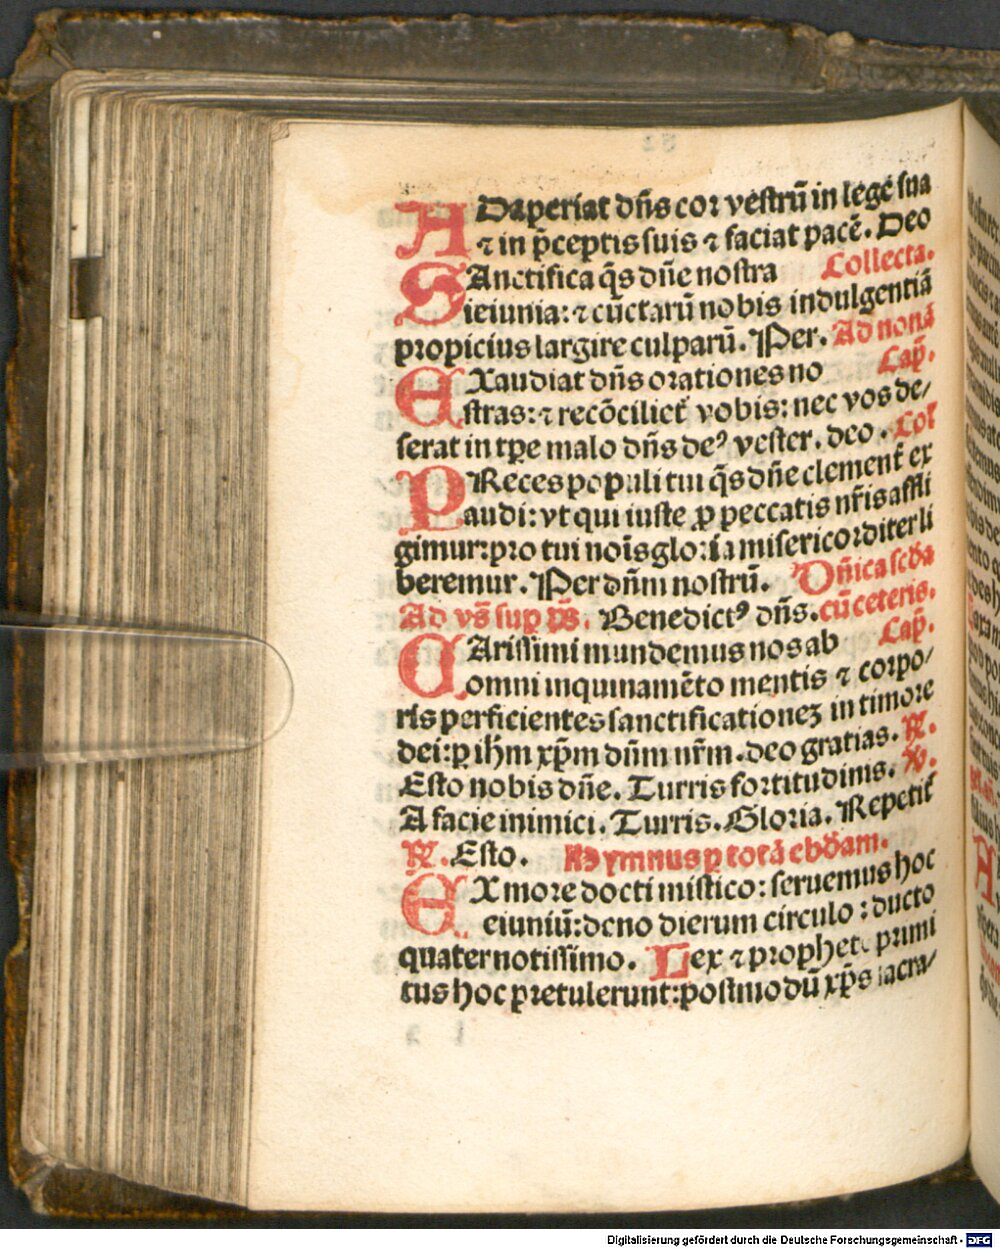 ADaperiat dñs cor vestrũ in legẽ sua
⁊ in p̃ceptis suis ⁊ faciat pacẽ. Deo
SAnctifica q̃s dñe nostra Collecta.
ieiunia: ⁊ cũctarũ nobis indulgentiã
propicius largire culparũ. Per. Ad nonã
EXaudiat dñs orationes no Cap̃.
stras: ⁊ recõciliet᷑ vobis: nec vos de/
serat in tp̱e malo dñs deꝰ vester. deo. Col
PReces populi tui q̃s dñe clement᷑ ex
audi: vt qui iuste ꝓ peccatis nr̃is affli
gimur: pro tui noĩs gloria misericorditer li
beremur. Per dñm nostrũ. Dñica scḋa
Ad vs̃ sup ps̃. Benedictꝰ dñs. cũ ceteris.
CArissimi mundemus nos ab Cap̃.
omni inquinamẽto mentis ⁊ corpo/
ris perficientes sanctificationeꝫ in timore
dei: ꝑ ihm̃ xp̃m dñm nr̃m. deo gratias. ℟.
Esto nobis dñe. Turris fortitudinis. ℣.
A facie inimici. Turris. Gloria. Repetit᷑
℟. Esto. Hymnus ꝑ totã ebd̃am.
EX more docti mistico: seruemus hoc
eiuniũ: deno dierum circulo: ducto
quater notissimo. Lex ⁊ prophete primi
tus hoc pretulerunt: postmodũ xp̃s sacra/
Digitalisierung gefördert durch die Deutsche Forschungsgemeinschaft - DFG